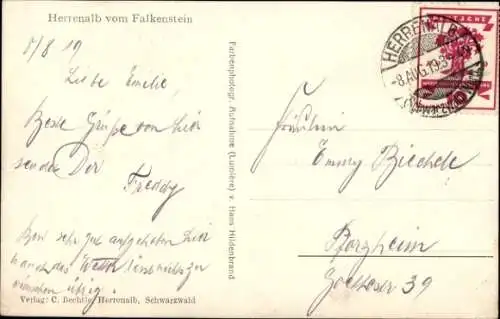 Herrenalb vom Falkenstein
8/8 19
Liebe Emilie,
Beste Grüsse von hier
sendet Dir
Freddy
Bin sehr gut aufgehoben hier
auch das Wetter
übrig.
Verlag: C. Bechtle, Herrenalb, Schwarzwald
Farbenphotogr. Aufnahme (Lumière) v. Hans Hildenbrand
HERRENALB
-8.AUG.19.
(SCHWARZWALD)
DEUTSCHE
10
Fräulein
Emmy Biechele
Pforzheim
Goethestr 39